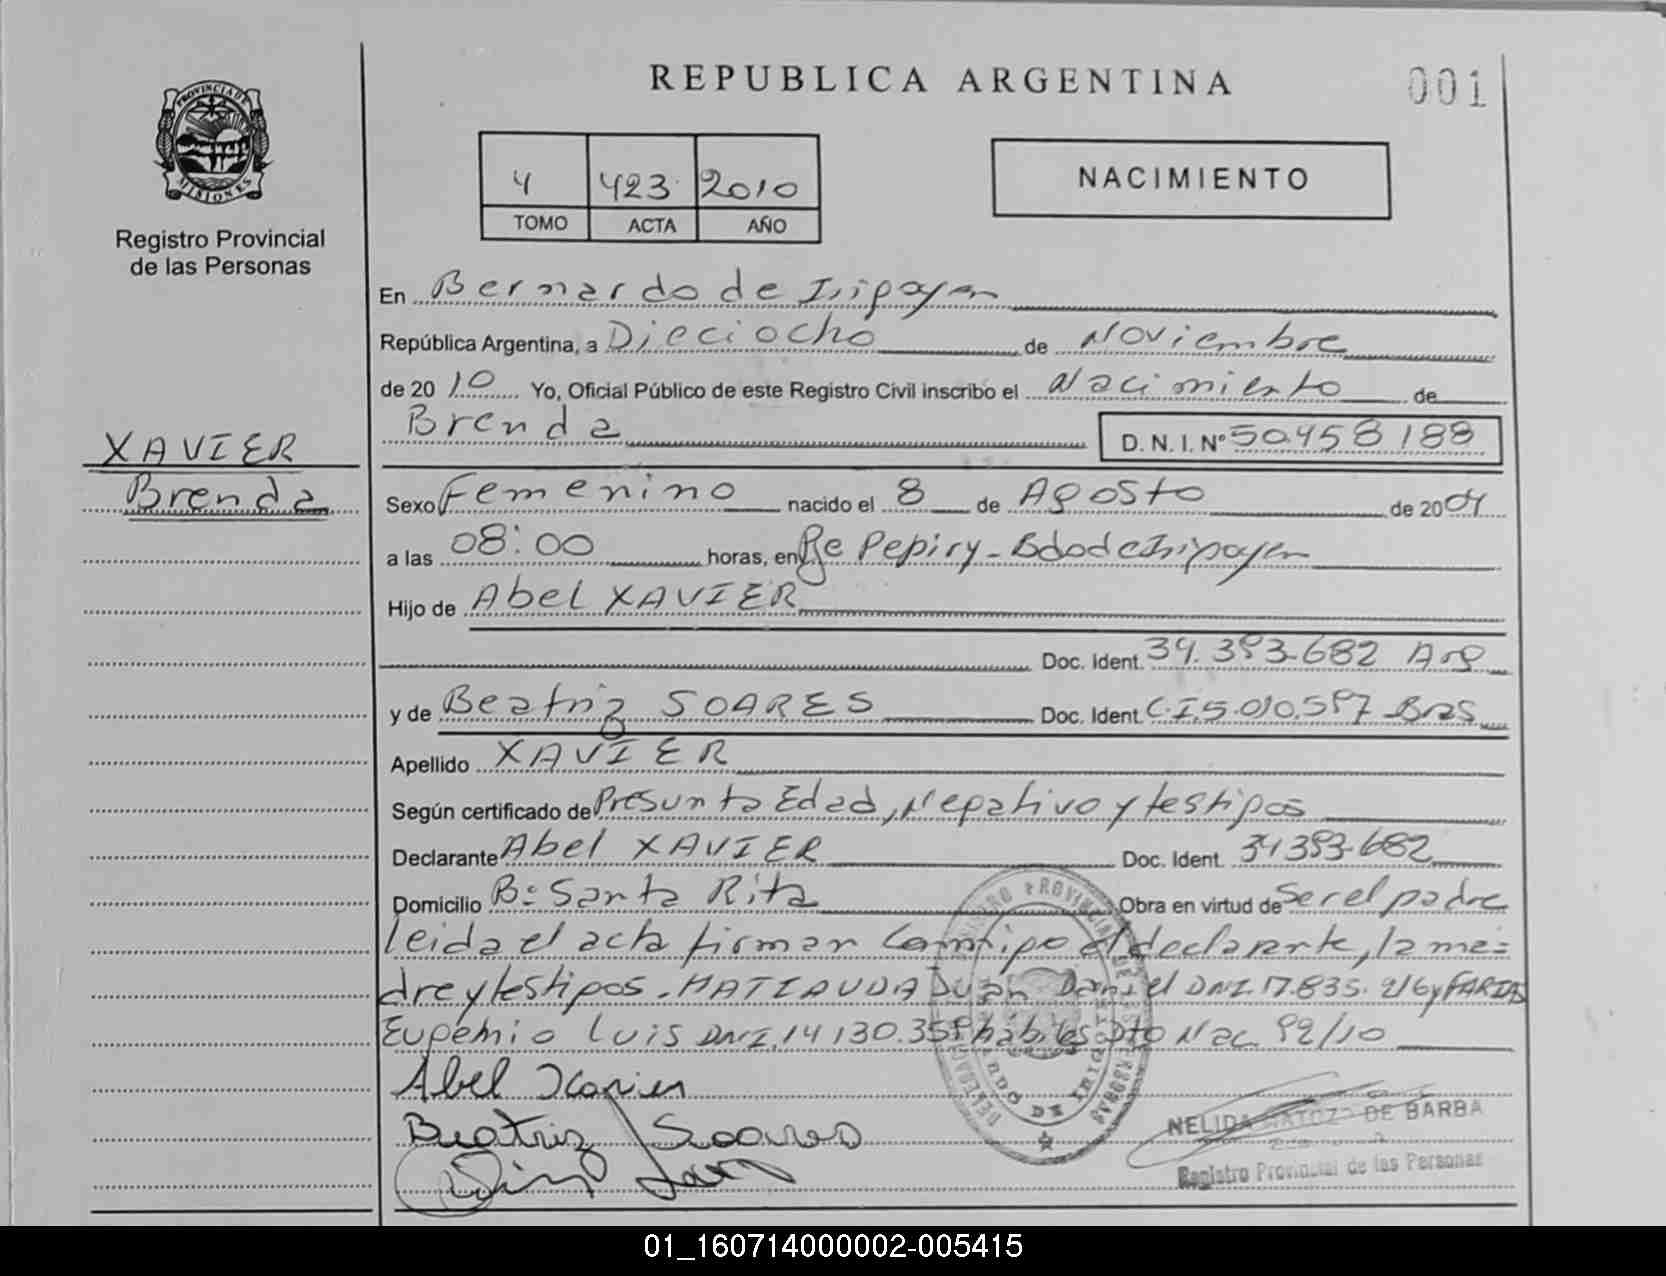 REPUBLICA ARGENTINA
001
PROVINCIA DE
MISIONES
Registro Provincial
de las Personas
4 423 2010
TOMO ACTA AÑO
NACIMIENTO
En Bernardo de Irigoyen
República Argentina, a Dieciocho de Noviembre
de 20 10 Yo, Oficial Público de este Registro Civil inscribo el Nacimiento de
Brenda D. N. I. Nº 50.458 188
XAVIER
Brenda
Sexo Femenino nacido el 8 de Agosto de 2004
a las 08:00 horas, en Pepiry - Bdo de Irigoyen
Hijo de Abel XAVIER
Doc. Ident. 34.393.682 Arg
y de Beatriz SOARES Doc. Ident. C.I. 5.010.597 Bras
Apellido XAVIER
Según certificado de Presunta Edad, Negativo y testigos
Declarante Abel XAVIER Doc. Ident. 34393.682
Domicilio Bº Santa Rita Obra en virtud de Ser el padre
leida el acta firman conmigo el declarante, la ma=
dre y testigos. MATIAUDA Juan Daniel DNI. 17.835. 216 y FARIAS
Eugenio Luis DNI. 14 130.359 habiles Dto Nac. 92/10
Abel Xavier
Beatriz Soares
NELIDA DE BARBA
Registro Provincial de las Personas
01_160714000002-005415